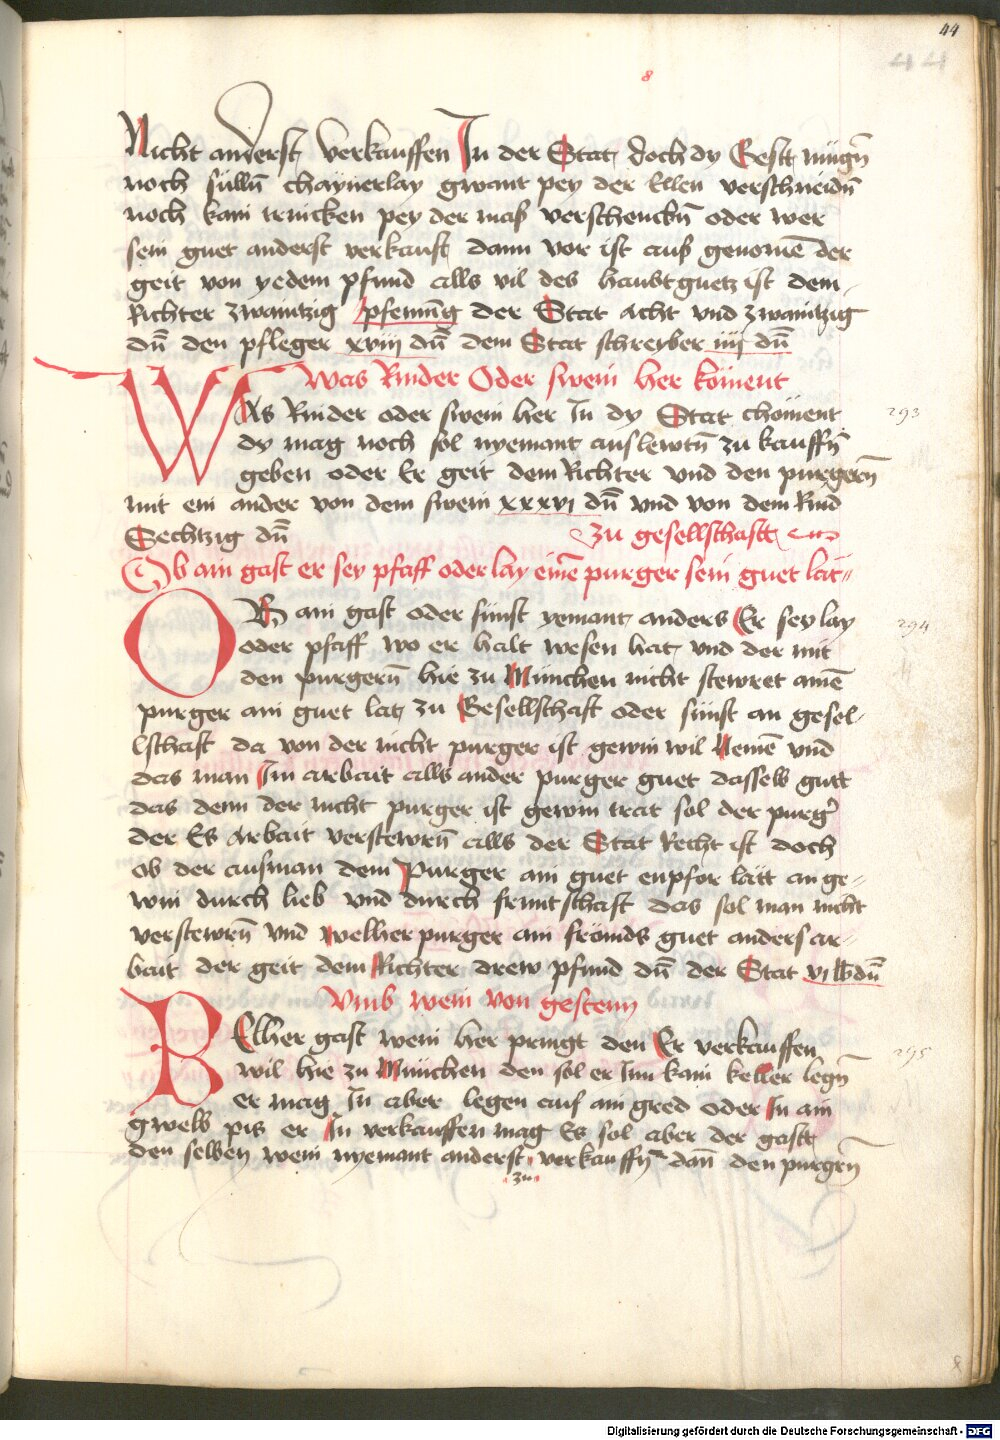 44
44
8
Nicht anderst verkauffen In der Stat doch dy Gestt mügn̄
noch sülln̄ chaynerlay gwant pey der Ellen verschneidn̄
noch kain trincken pey der maß verschenckn̄ oder wer
sein guet anderst verkauft dann vor ist auß genomē der
geit von yedem pfund alls vil des haubtguetz ist dem
Richter zwaintzig pfennīg der Stat acht vnd zwaintzig
dn̄ den pfleger xviij dn̄ dem Stat schreyber iiij dn̄
Was Rinder Oder swein her köment
WAs Rinder oder swein her In dy Stat chöment
dy mag noch sol nyemant auslewtn̄ zu kauffn̄
geben oder Er geit dem Richter vnd den purgern̄
mit ein ander von dem swein xxxvj dn̄ vnd von dem Rind
Sechtzig dn̄
zu gesellschafft
Ob ain gast er sey pfaff oder lay einē purger sein guet lät
OB ain gast oder sünst yemant anders Er sey lay
oder pfaff wo er halt wesen hat vnd der mit
den purgern̄ hie zu München nicht stewret ainē
purger ain guet lat zu Gesellschaft oder sünst an gesel-
lschaft da von der nicht purger ist gewin wil Nemē vnd
das man Im arbait alls ander purger guet dasselb gutt
das denn der nicht purger ist gewin trat sol der purḡ
der Es Arbait verstewrn̄ alls der Stat Recht ist doch
ob der ausman dem Purger ain guet enpfor lätt an ge-
win durch lieb vnd durch frintschaft das sol man nicht
verstewrn̄ vnd welher purger ain frömds guet anders ar-
bait der geit dem Richter drew pfund dn̄ der Stat vj lb dn̄
Vmb wein von gestenn
WElher gast wein her pringt den Er verkauffen
wil hie zu München den sol er Inn kain keller legn̄
er mag In aber legen auf ain gred oder In ain
gwelb pis er In verkauffen mag Es sol aber der gastt
den selben wein nyemant anderst verkauffn̄ dan̄ den purgrn̄
zu
293
294
295
8
Digitalisierung gefördert durch die Deutsche Forschungsgemeinschaft - DFG